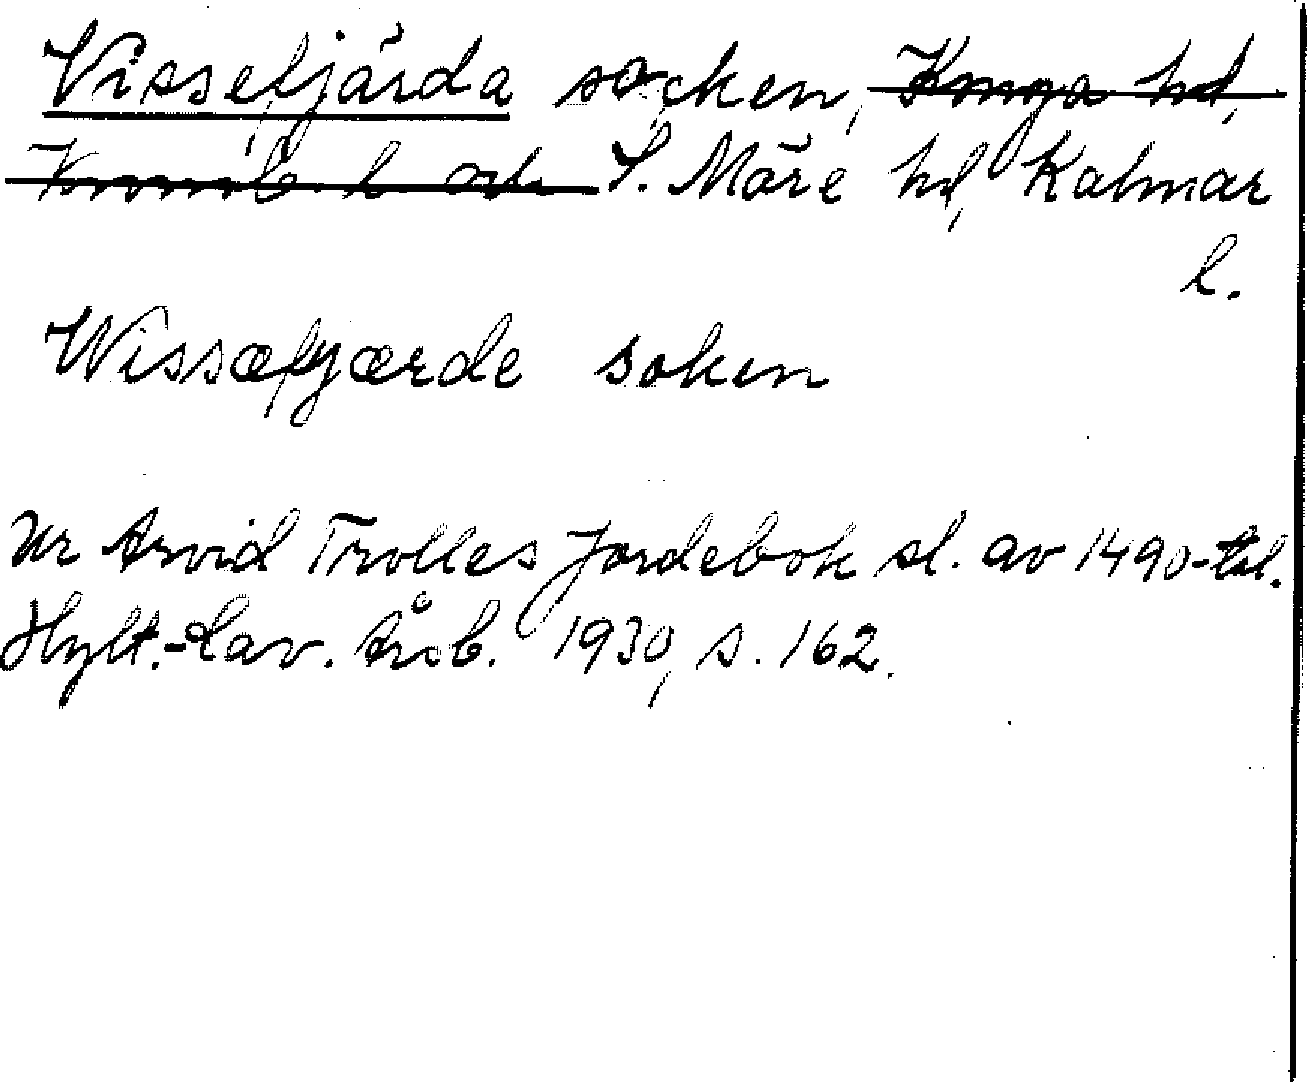 Vissefjärda socken, Konga hd,
Kronob. l. och S. Möre hd, Kalmar
l.
Wissæfjærde soken
Ur Arvid Trolles Jordebok sl. av 1490-tal.
Hylt.-Cav. årsb. 1930, s. 162.